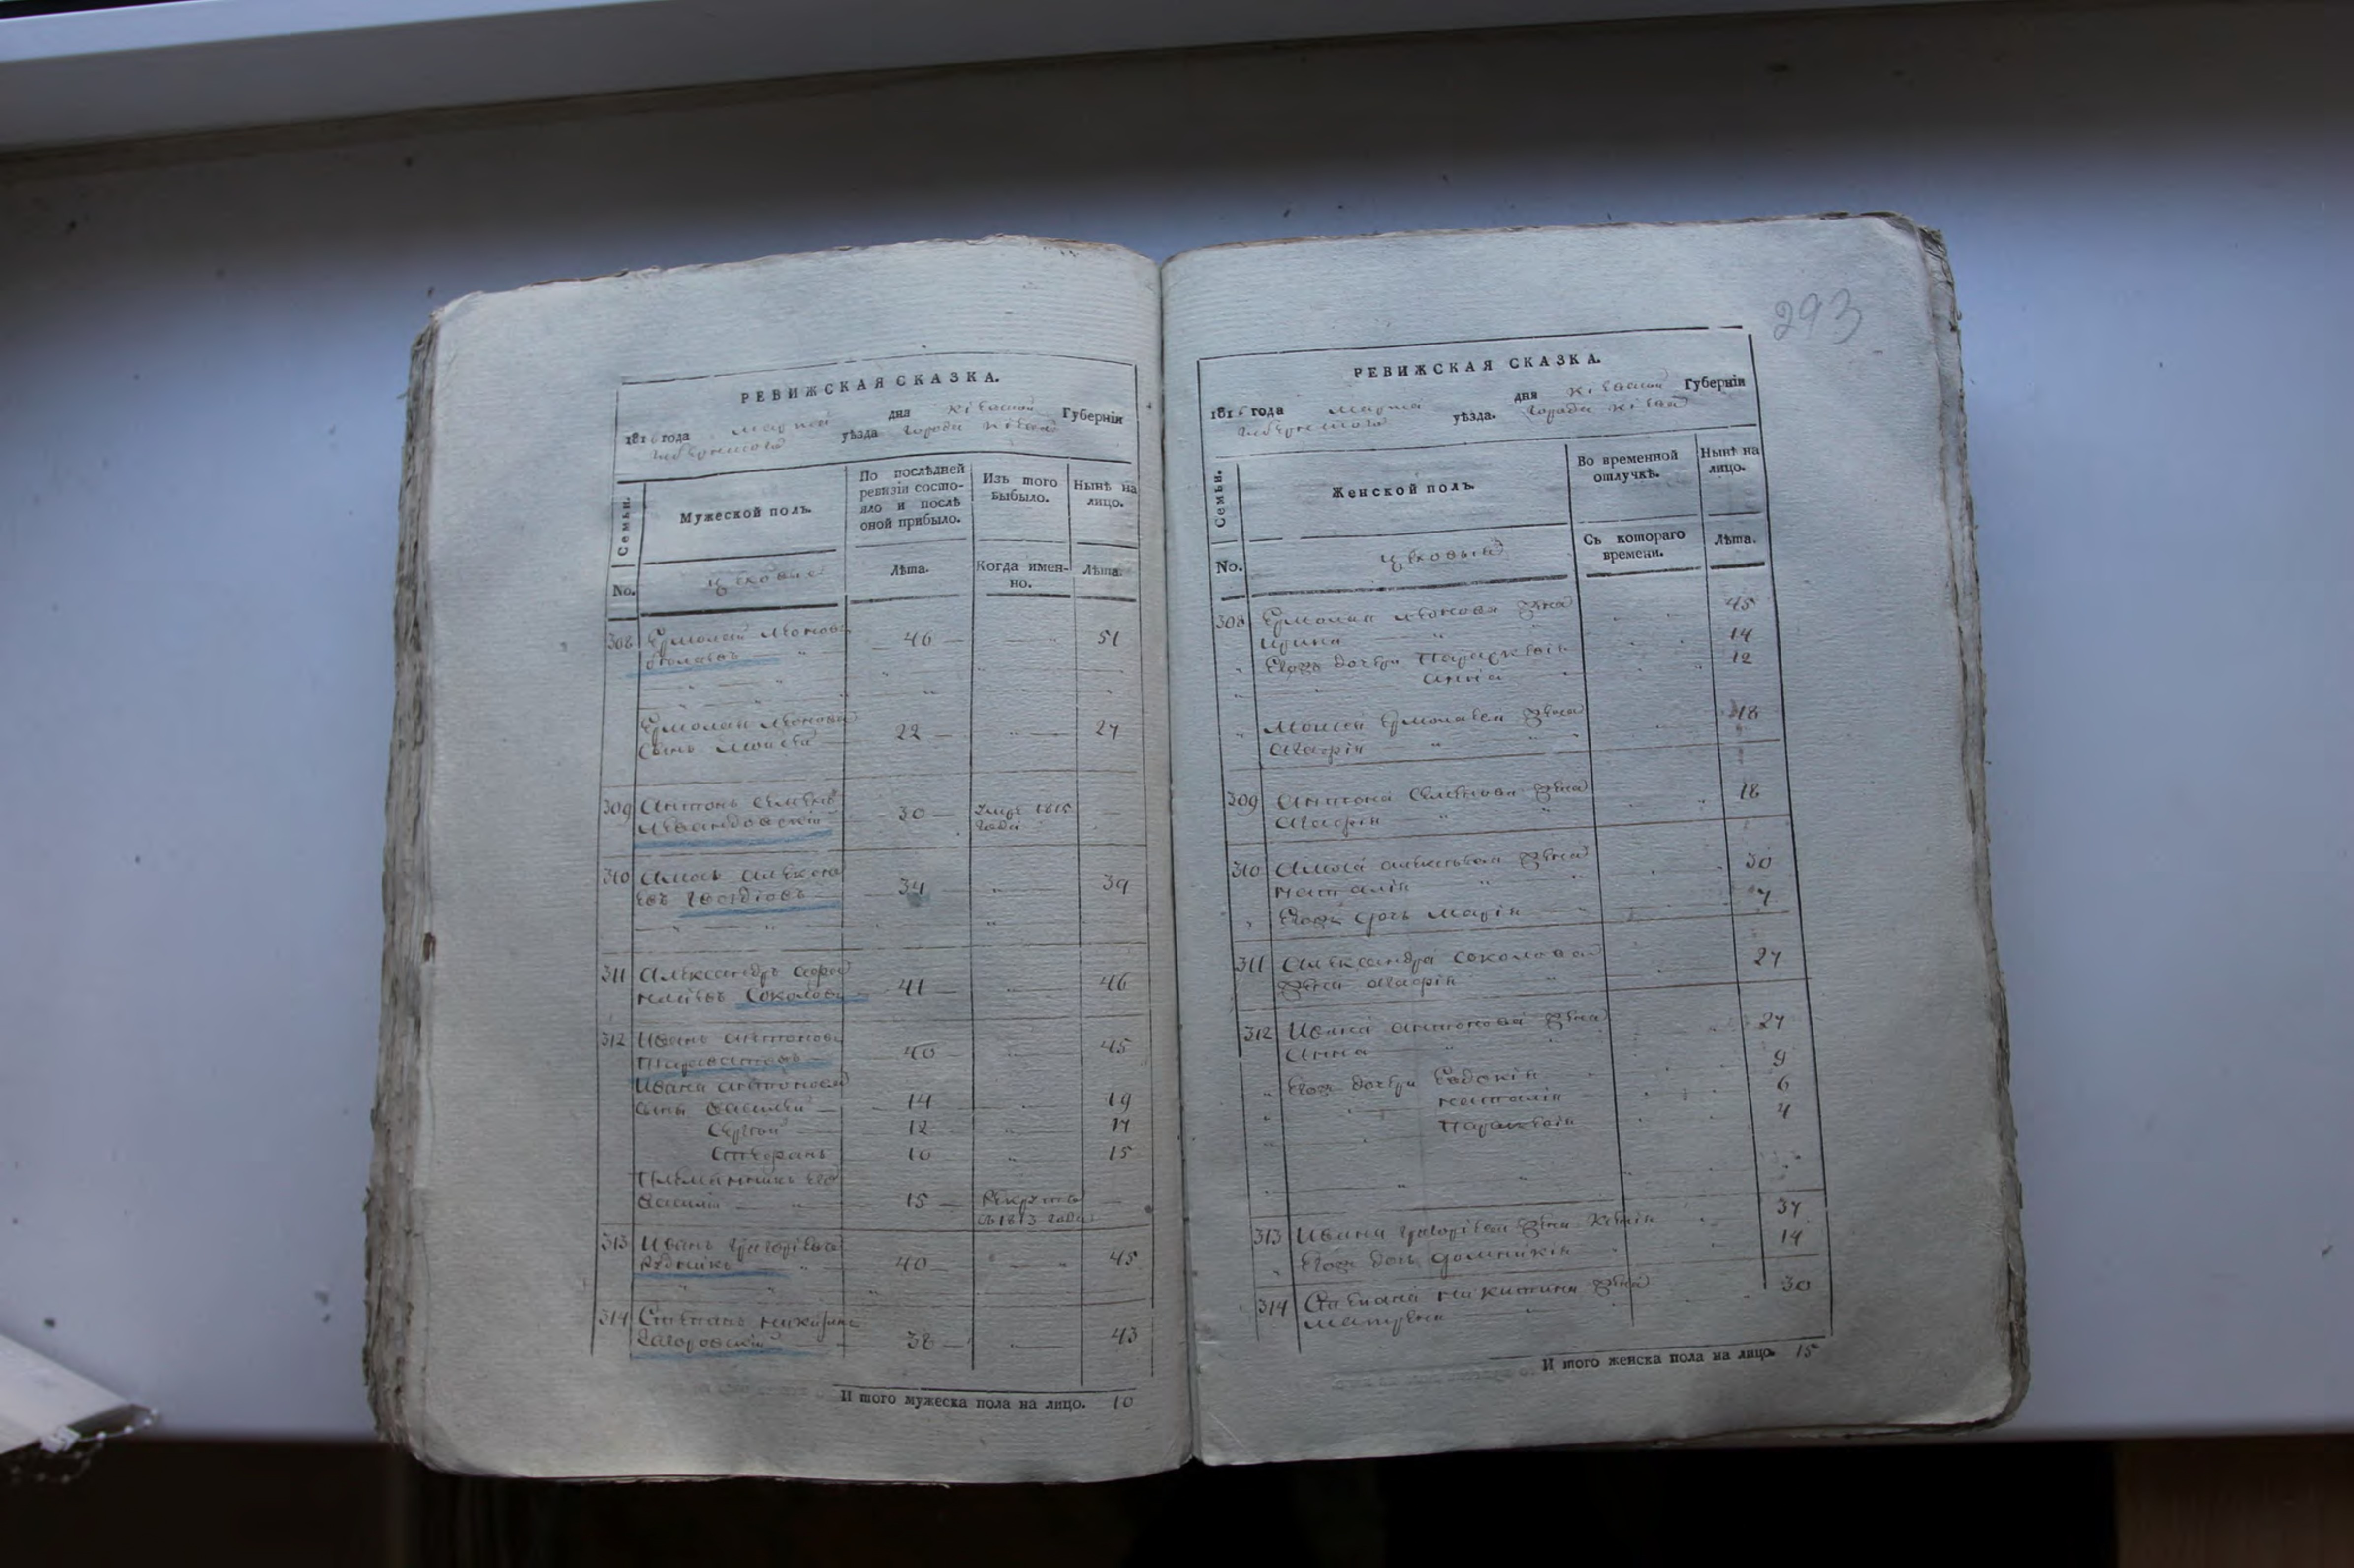 РЕВИЖСКАЯ СКАЗКА.
181 года Марта дня Кіевской Губерніи
уѣзда города Кіева
Семьи.
Мужеской полъ.
По послѣдней ревизіи состо-
яло и послѣ
оной прибыло.
Изъ того
выбыло.
Нынѣ на
лицо.
No.
цеховые
Лѣта.
Когда имен-
но.
Лѣта.
308 Ермолай Леоновъ 46 51
Ермолая Леонова
сынъ Моисей 22 27
309 Антонъ Семеновъ
Левандовскій 30 умре 1815
года
310 Амосъ Алексѣ
евъ Гвоздіовъ 34 39
311 Александръ
Соколовъ 41 46
312 Иванъ Антоновъ 40 45
Ивана Антонова
сыны Василей 14 19
Сергѣй 12 17
Стефанъ 10 15
Племянникъ его
Василій 15 Рекрутъ
съ 1813 года
313 Иванъ Григорьевъ
Рудникъ 40 45
314 Степанъ Никитинъ
Загоровскій 38 43
И того мужеска пола на лицо. 10
293
РЕВИЖСКАЯ СКАЗКА.
181 года Марта дня Кіевской Губерніи
уѣзда. города Кіева
Семьи.
Женской полъ.
Во временной
отлучкѣ.
Нынѣ на
лицо.
No.
цеховыя
Съ котораго
времени.
Лѣта.
308 Ермолая Леонова жена
Ирина 45
Егожъ дочери Параскевія 14
Анна 12
Моисея Ермолаева жена
Агафія 18
309 Антона Семенова жена
Агафія 18
310 Амоса Алексѣева жена
Наталія 30
Егожъ дочь Марія 7
311 Александра Соколова
жена Агафія 27
312 Ивана Антонова жена
Анна 27
Егожъ дочери Евдокія 9
Наталія 6
Параскевія 4
313 Ивана Григорьева жена Ксенія 37
Егожъ дочь Доминикія 14
314 Степана Никитина жена
Матрена 30
И того женска пола на лицо. 15